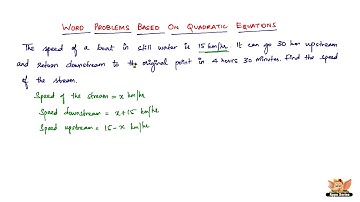 Word Problems Based On Quadratic Equations
The speed of a boat in still water is 15 km/hr. It can go 30 km upstream
and return downstream to the original point in 4 hours 30 minutes. Find the speed
of the stream.
Speed of the stream = x km/hr
Speed downstream = x+15 km/hr
Speed upstream = 15-x km/hr